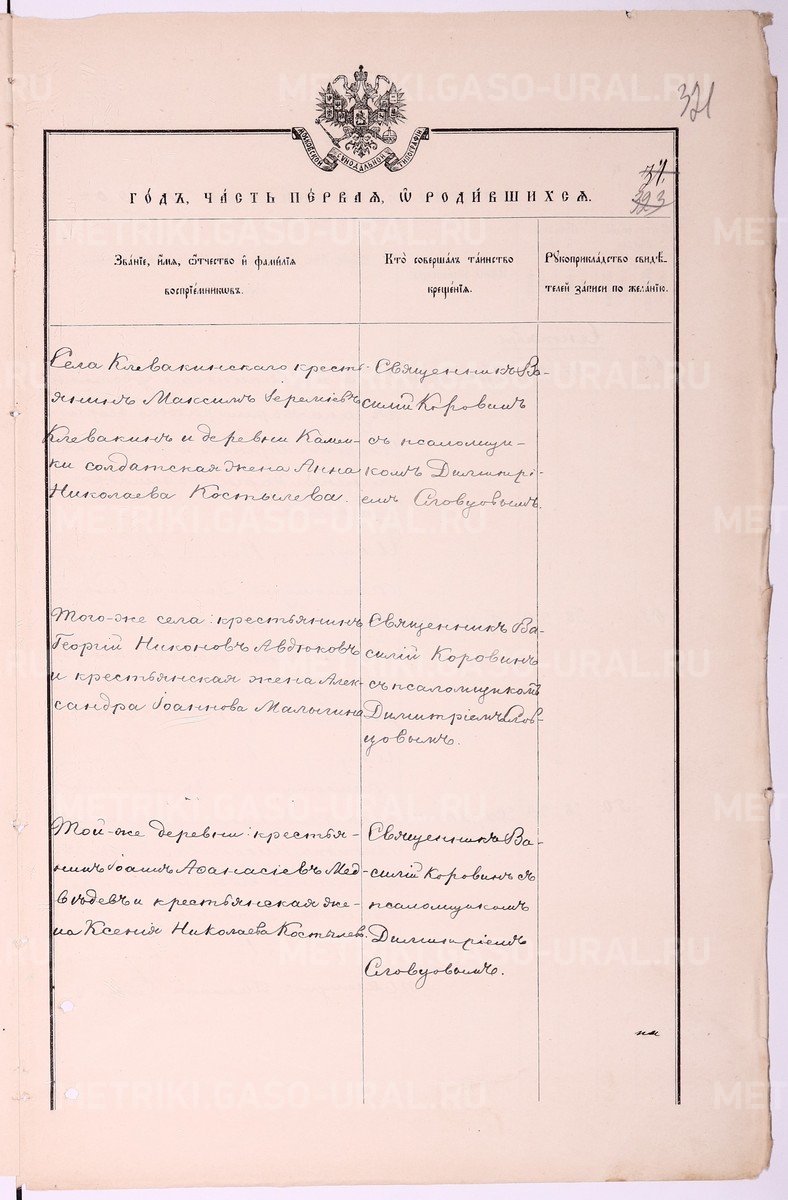 321
МОСКОВСКОЙ СѴНОДАЛЬНОЙ ТИПОГРАФІИ
31.
323
ГО́ДЪ, ЧА́СТЬ ПЕ́РВАЯ, Ѽ РОДИ́ВШИХСЯ.
Зва́нїе, и҆́мѧ, ѻ҆́тчество и҆ фами́лїѧ
воспрїе́мникѡвъ.
Кто̀ соверша́лъ та́инство
креще́нїѧ.
Рꙋкоприкла́дство свидѣ́-
телей за́писи по жела́нїю.
Села Клевакинскаго кресть-
янинъ Максимъ Іереміевъ
Клевакинъ и деревни Камен-
ки солдатская жена Анна
Николаева Костылева.
Священникъ Ва-
силій Коровинъ
съ псаломщи-
комъ Димитрі-
емъ Словцовымъ.
Того-же села: крестьянинъ
Георгій Никоновъ Авдюковъ
и крестьянская жена Алек-
сандра Іоаннова Малыгина
Священникъ Ва-
силій Коровинъ
съ псаломщикомъ
Димитріемъ Слов-
цовымъ.
Той-же деревни: крестья-
нинъ Іоаннъ Аѳанасіевъ Мед-
вѣдевъ и крестьянская же-
на Ксенія Николаева Костылева.
Священникъ Ва-
силій Коровинъ съ
псаломщикомъ
Димитріемъ
Словцовымъ.
METRIKI.GASO-URAL.RU